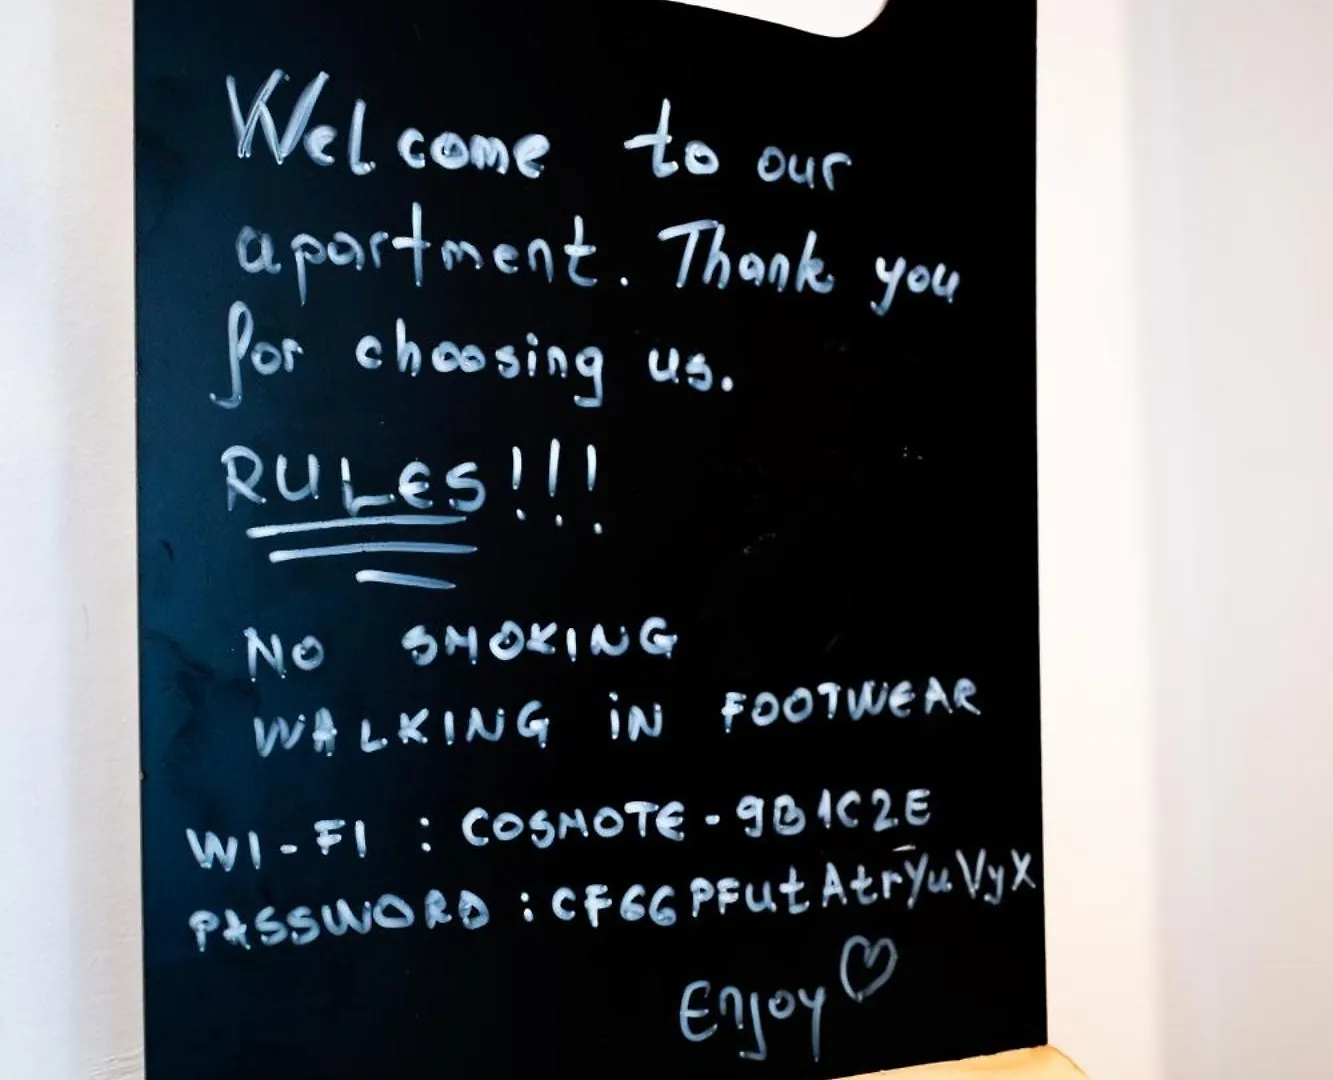 Welcome to our
apartment. Thank you
for choosing us.
RULES!!!
NO SMOKING
WALKING iN FOOTWEAR
WI-FI : COSMOTE-9B1C2E
PASSWORD : CF66PFUtAtrYuVyX
Enjoy ♡